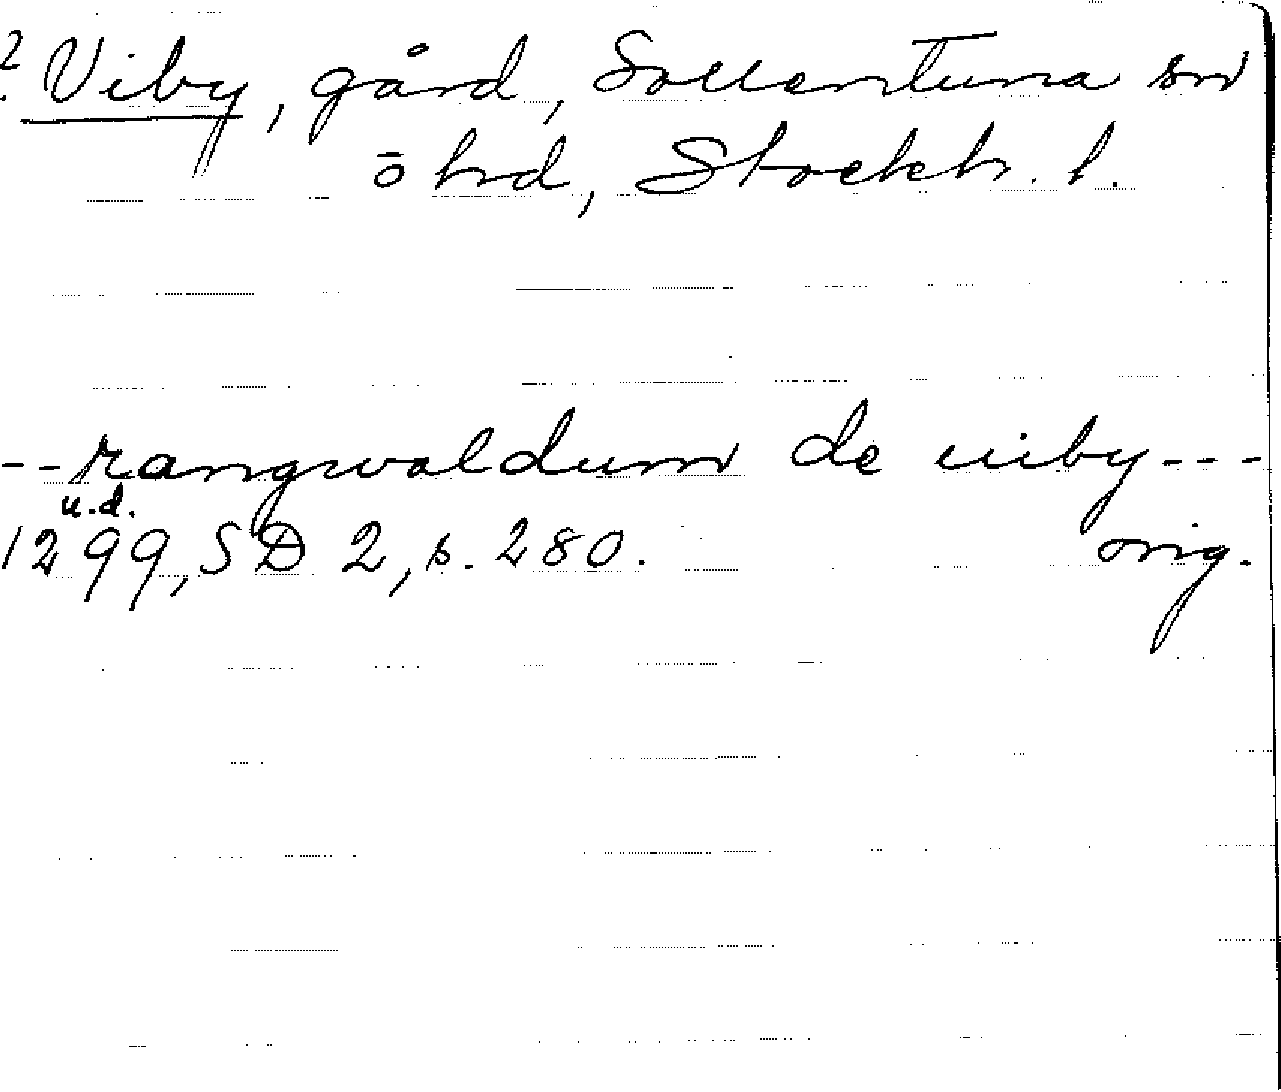 ? Viby, gård, Sollentuna sn
o hrd, Stockh. l.
-- rangwaldum de uiby ---
u.d.
1299, SD 2, s. 280. orig.